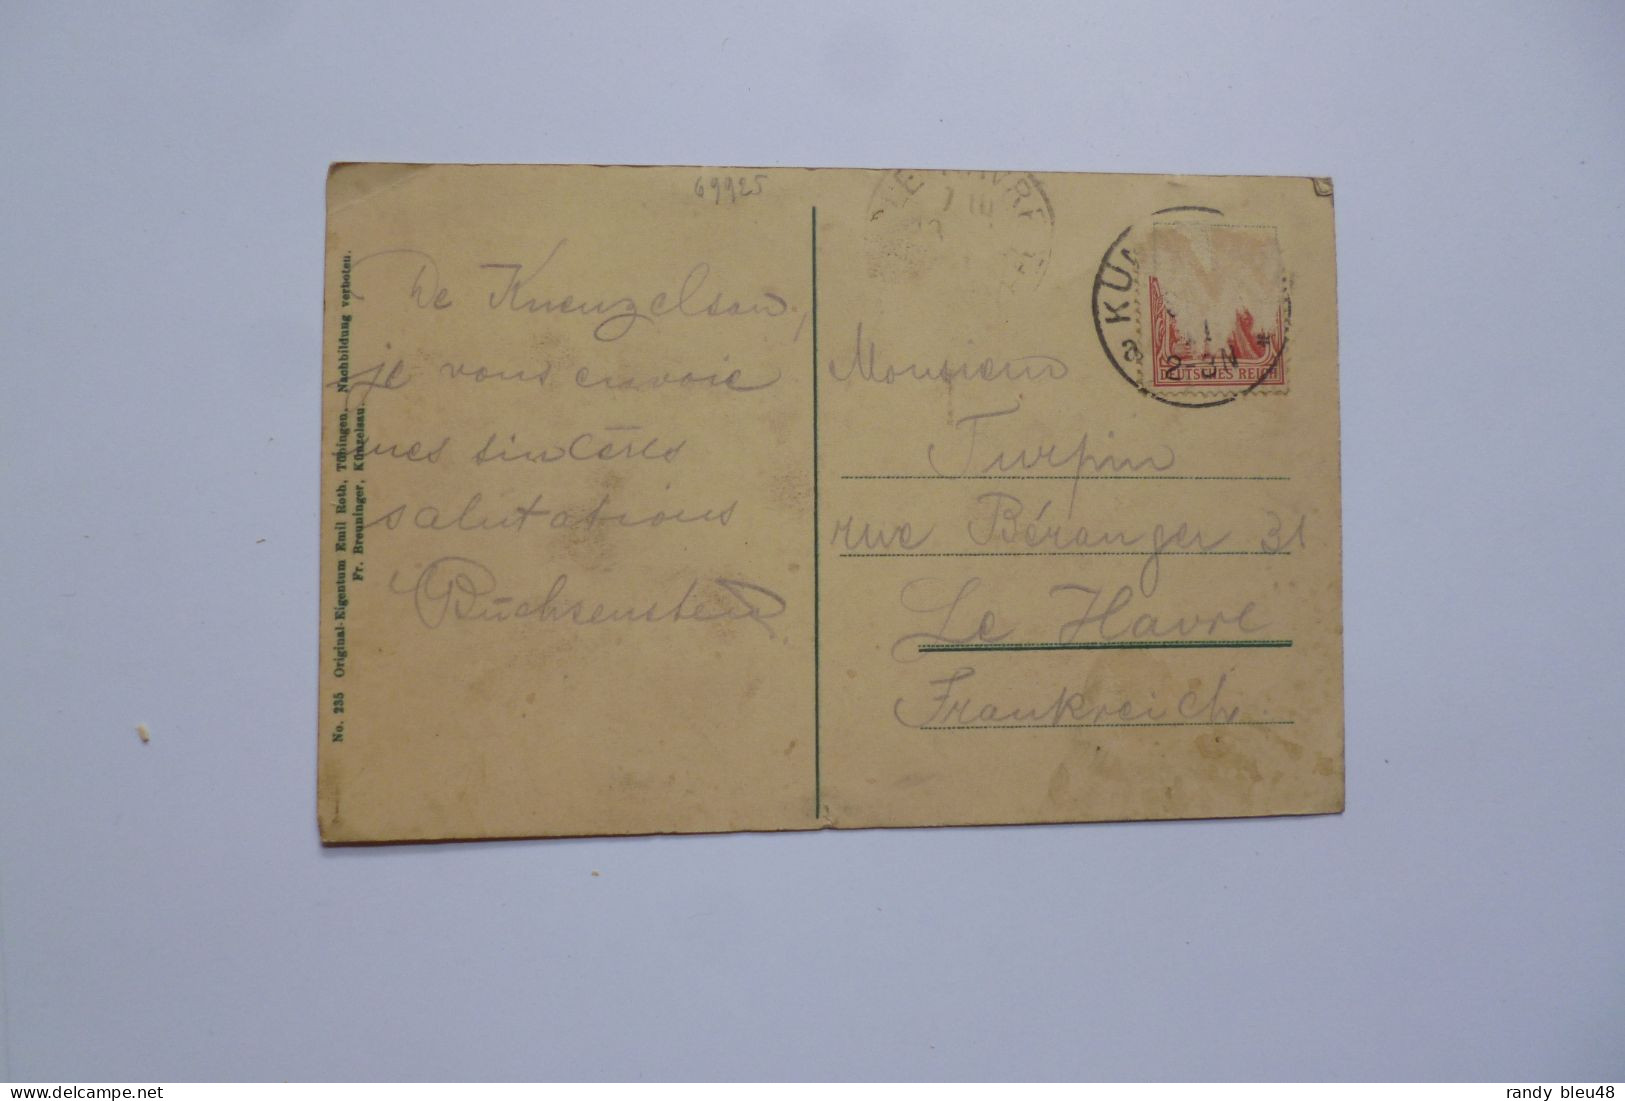 69925
De Kuenzelsau,
je vous envoie
mes sincères
salutations
Buchsenstein
No. 235 Original-Eigentum Emil Roth, Tübingen. Nachbildung verboten.
Fr. Breuninger, Künzelsau.
LE HAVRE
a KÜ
8-9N *
DEUTSCHES REICH
Monsieur
Turpin
rue Béranger 31
Le Havre
Frankreich.
randy bleu48